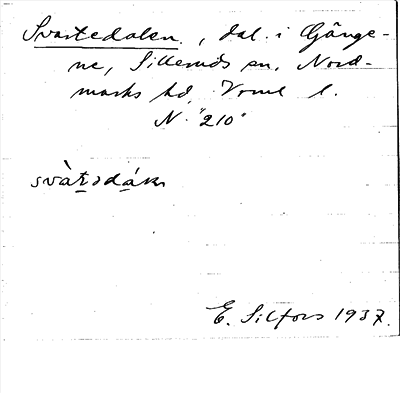 Svartedalen, dal. i Gänge-
ne, Silleruds sn, Nord-
marks hd, Vrml l.
N. "210"
svàṯədáḷn
E. Silfors 1937.